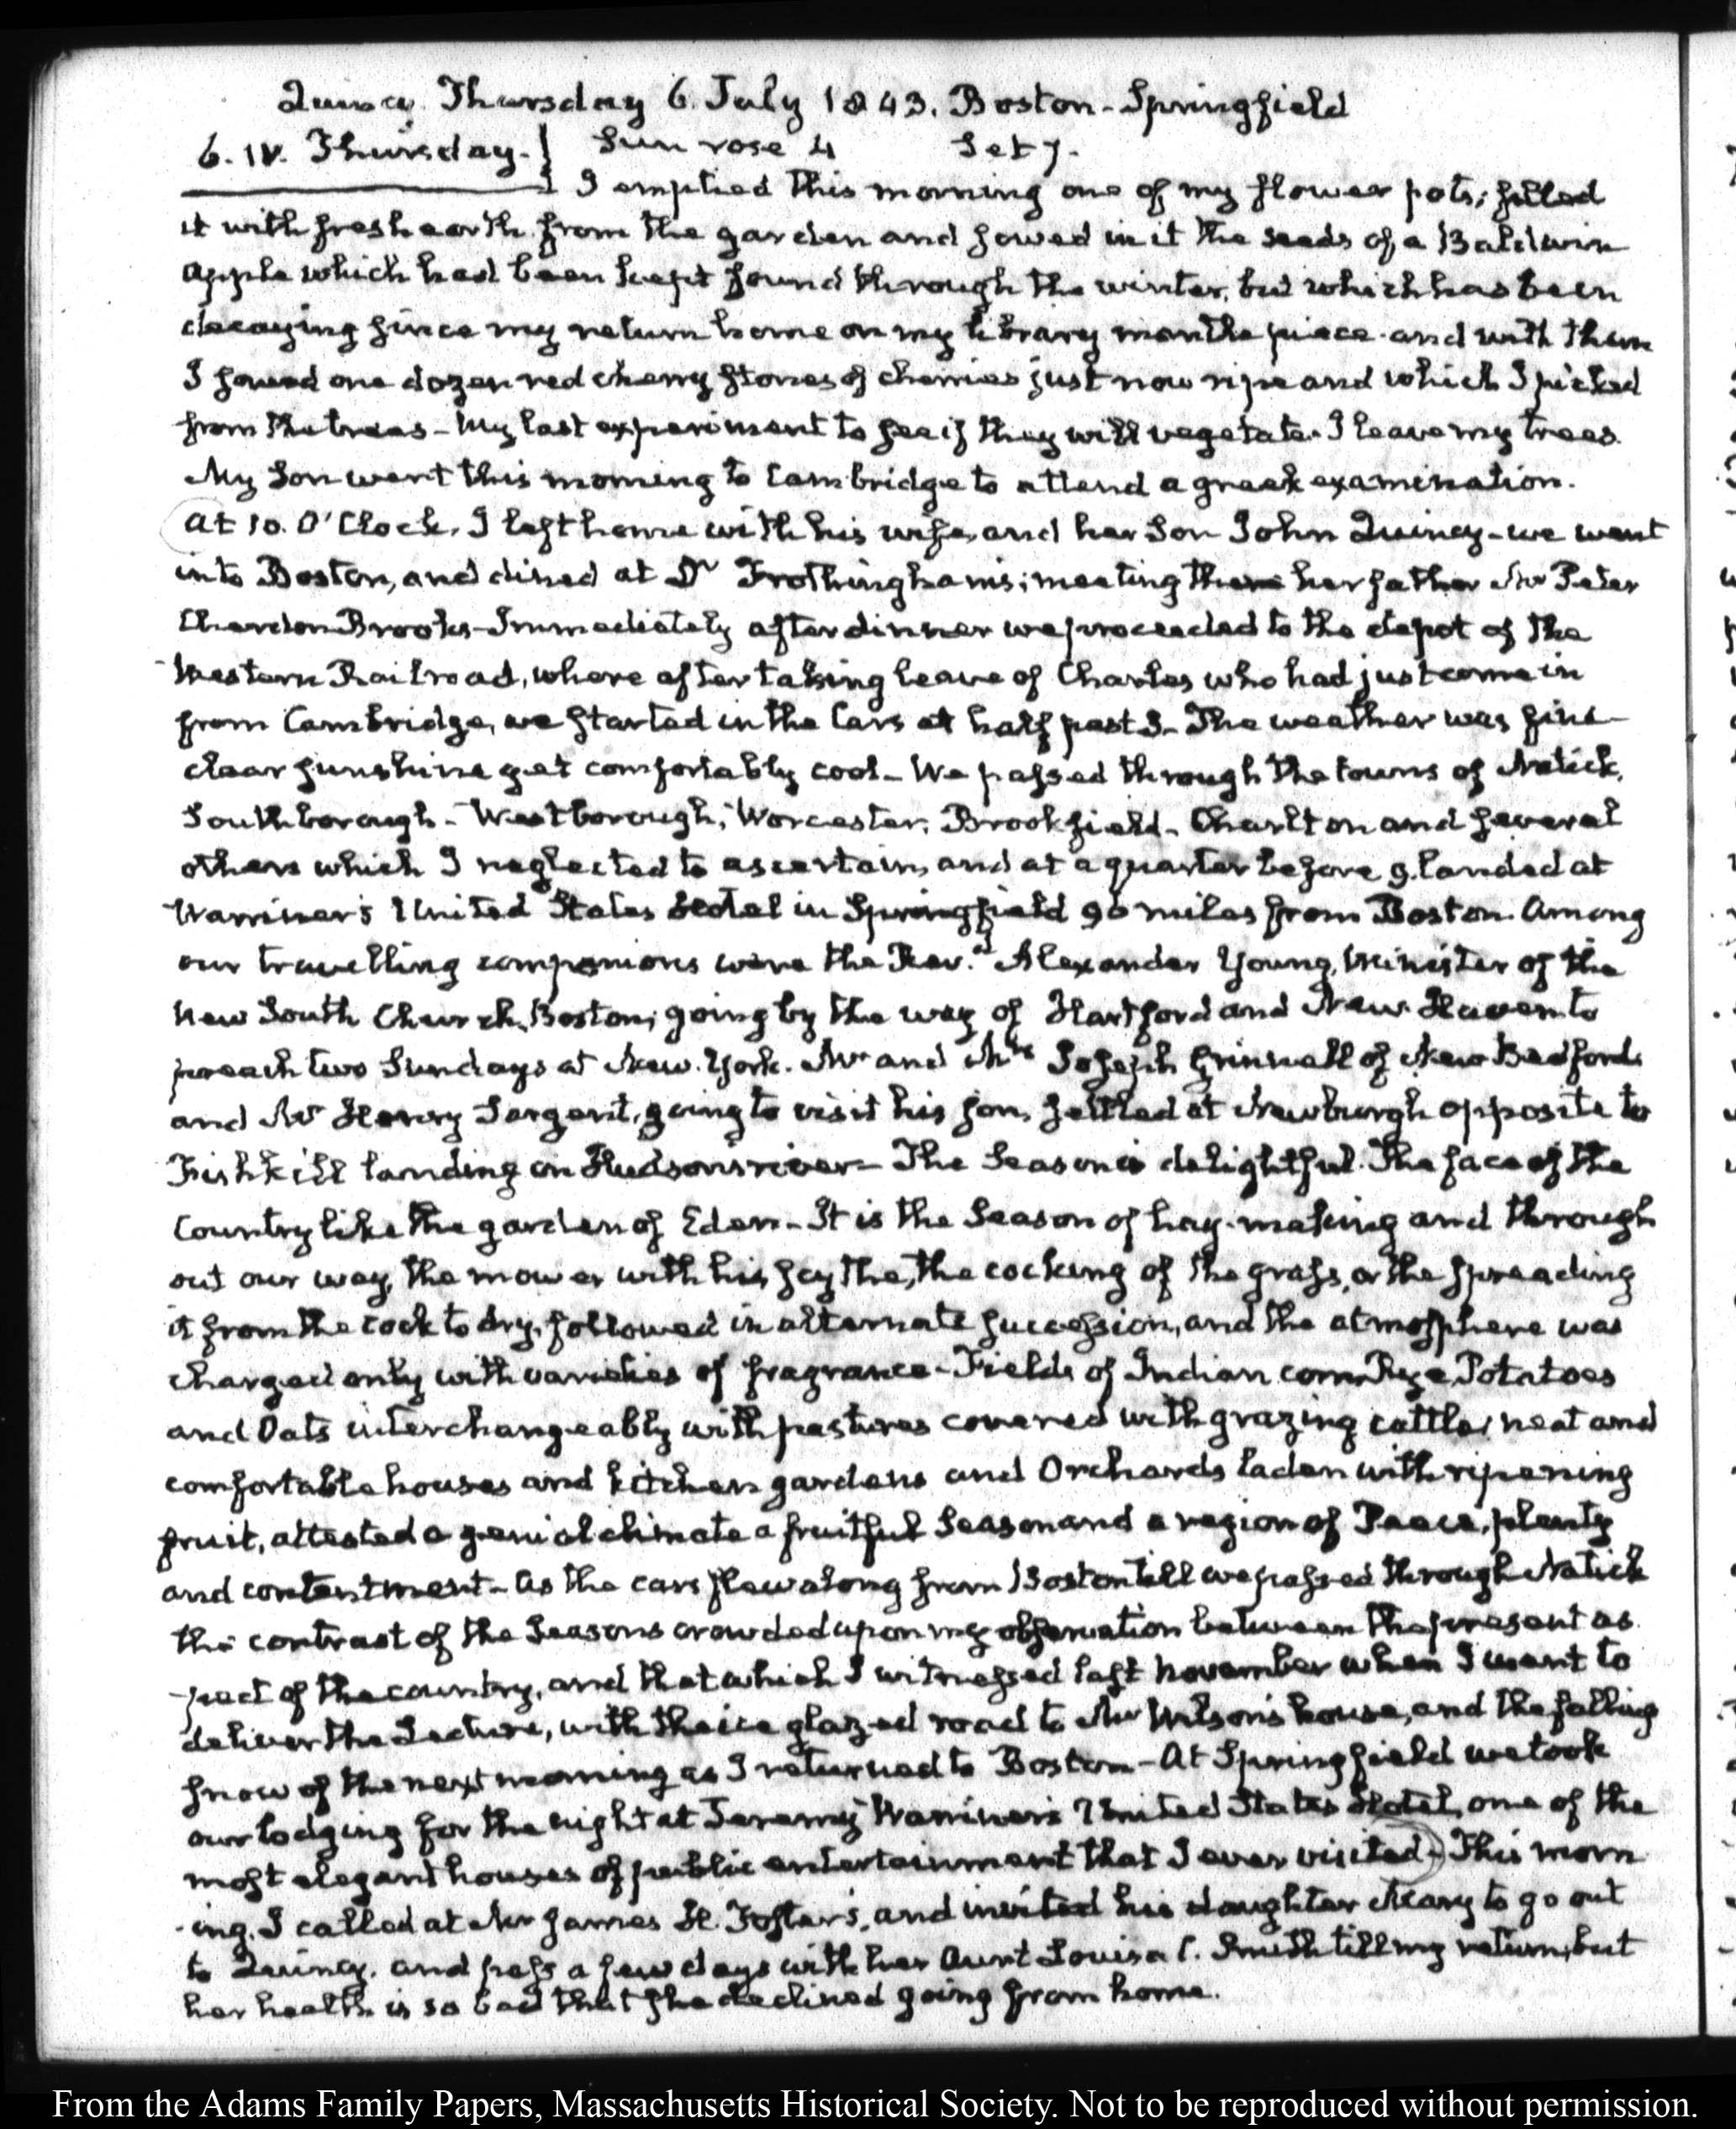 Quincy. Thursday 6. July 1843. Boston - Springfield
6. IV. Thursday. Sun rose 4 Set 7.
I emptied this morning one of my flower pots; filled
it with fresh earth from the garden and sowed in it the seeds of a Baldwin
apple which had been kept sound through the winter, but which has been
decaying since my return home on my library mantle piece - and with them
I sowed one dozen red cherry stones of cherries just now ripe and which I picked
from the trees - My last experiment to see if they will vegetate. I leave my trees.
My Son went this morning to Cambridge to attend a greek examination.
At 10. O'Clock, I left home with his wife, and her Son John Quincy - we went
into Boston, and dined at Dr Frothingham's; meeting there her father Mr Peter
Chardon Brooks - Immediately after dinner we proceeded to the depot of the
Western Railroad, where after taking leave of Charles who had just come in
from Cambridge, we started in the Cars at half past 3 - The weather was fine
clear sunshine yet comfortably cool - We passed through the towns of Natick,
Southborough - Westborough, Worcester, Brookfield - Charlton and several
others which I neglected to ascertain, and at a quarter before 9. landed at
Warriner's United States Hotel in Springfield 90 miles from Boston. Among
our travelling companions were the Rev.d Alexander Young, Minister of the
New South Church, Boston; going by the way of Hartford and New-Haven to
preach two Sundays at New-York. Mr and Mrs Joseph Grinnell of New Bedford
and Mr Henry Sargent, going to visit his son, settled at Newburgh opposite to
Fishkill landing on Hudson's river - The Season is delightful. The face of the
Country like the garden of Eden - It is the Season of hay-making and through
out our way, the mower with his scythe, the cocking of the grass, or the spreading
it from the cock to dry, followed in alternate succession, and the atmosphere was
charged only with varieties of fragrance - Fields of Indian corn, Rye, Potatoes
and Oats interchangeably with pastures covered with grazing cattle; neat and
comfortable houses and kitchen gardens and Orchards laden with ripening
fruit, attested a genial climate a fruitful Season and a region of Peace, plenty
and contentment - As the cars flew along from Boston till we passed through Natick
the contrast of the Seasons crowded upon my observation between the present as
-pect of the country, and that which I witnessed last November when I went to
deliver the Lecture, with the ice glazed road to Mr Wilson's house, and the falling
snow of the next morning as I returned to Boston - At Springfield we took
our lodging for the night at Jeremy Warriner's United States Hotel, one of the
most elegant houses of public entertainment that I ever visited - This morn
-ing, I called at Mr James H. Foster's, and invited his daughter Mary to go out
to Quincy, and pass a few days with her Aunt Louisa C. Smith till my return; but
her health is so bad that she declined going from home.
From the Adams Family Papers, Massachusetts Historical Society. Not to be reproduced without permission.